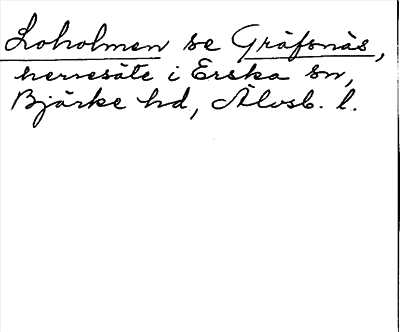 Loholmen se Gräfsnäs,
herresäte i Erska sn,
Bjärke hd, Älvsb. l.